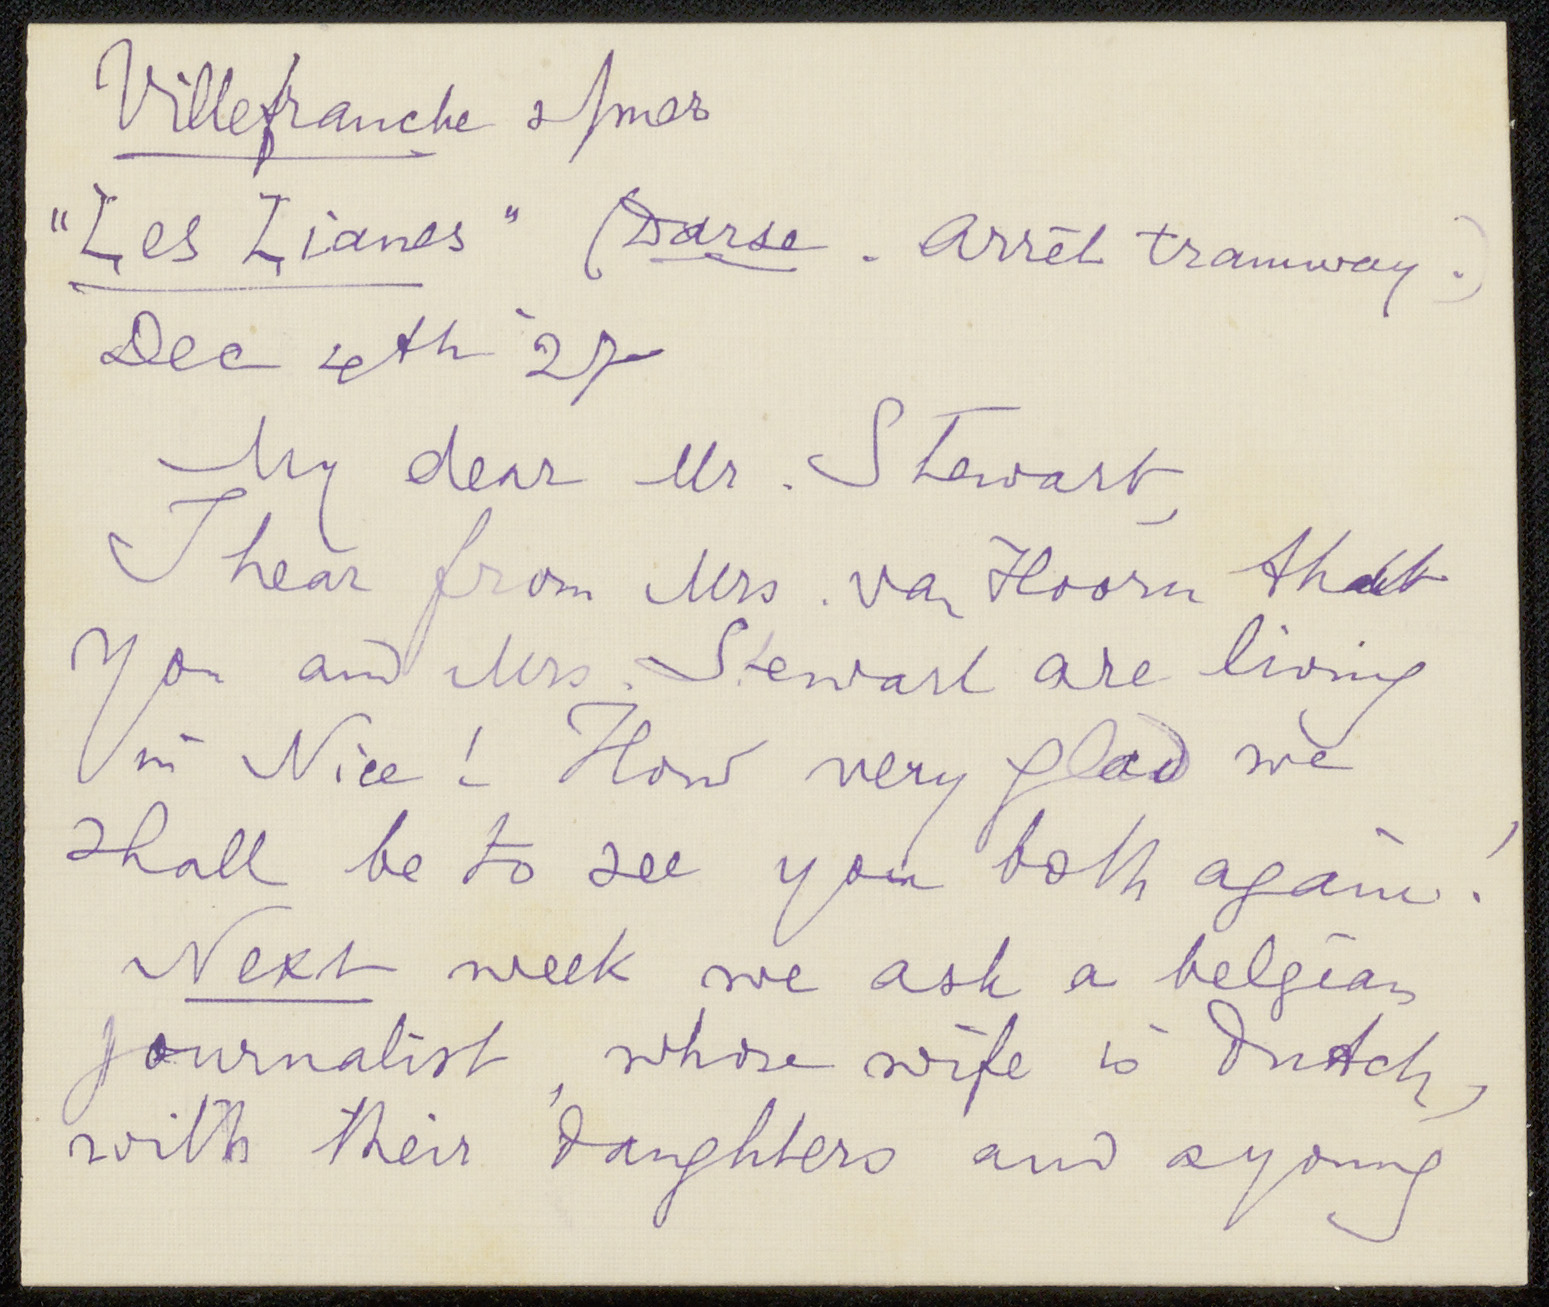 Villefranche s/mer
"Les Lianes" (Darse. Arrêt tramway.)
Dec 4th '27
My dear Mr. Stewart,
I hear from Mrs. van Hoorn that
you and Mrs. Stewart are living
in Nice! How very glad we
shall be to see you both again!
Next week we ask a belgian
journalist, whose wife is dutch,
with their daughters and a young